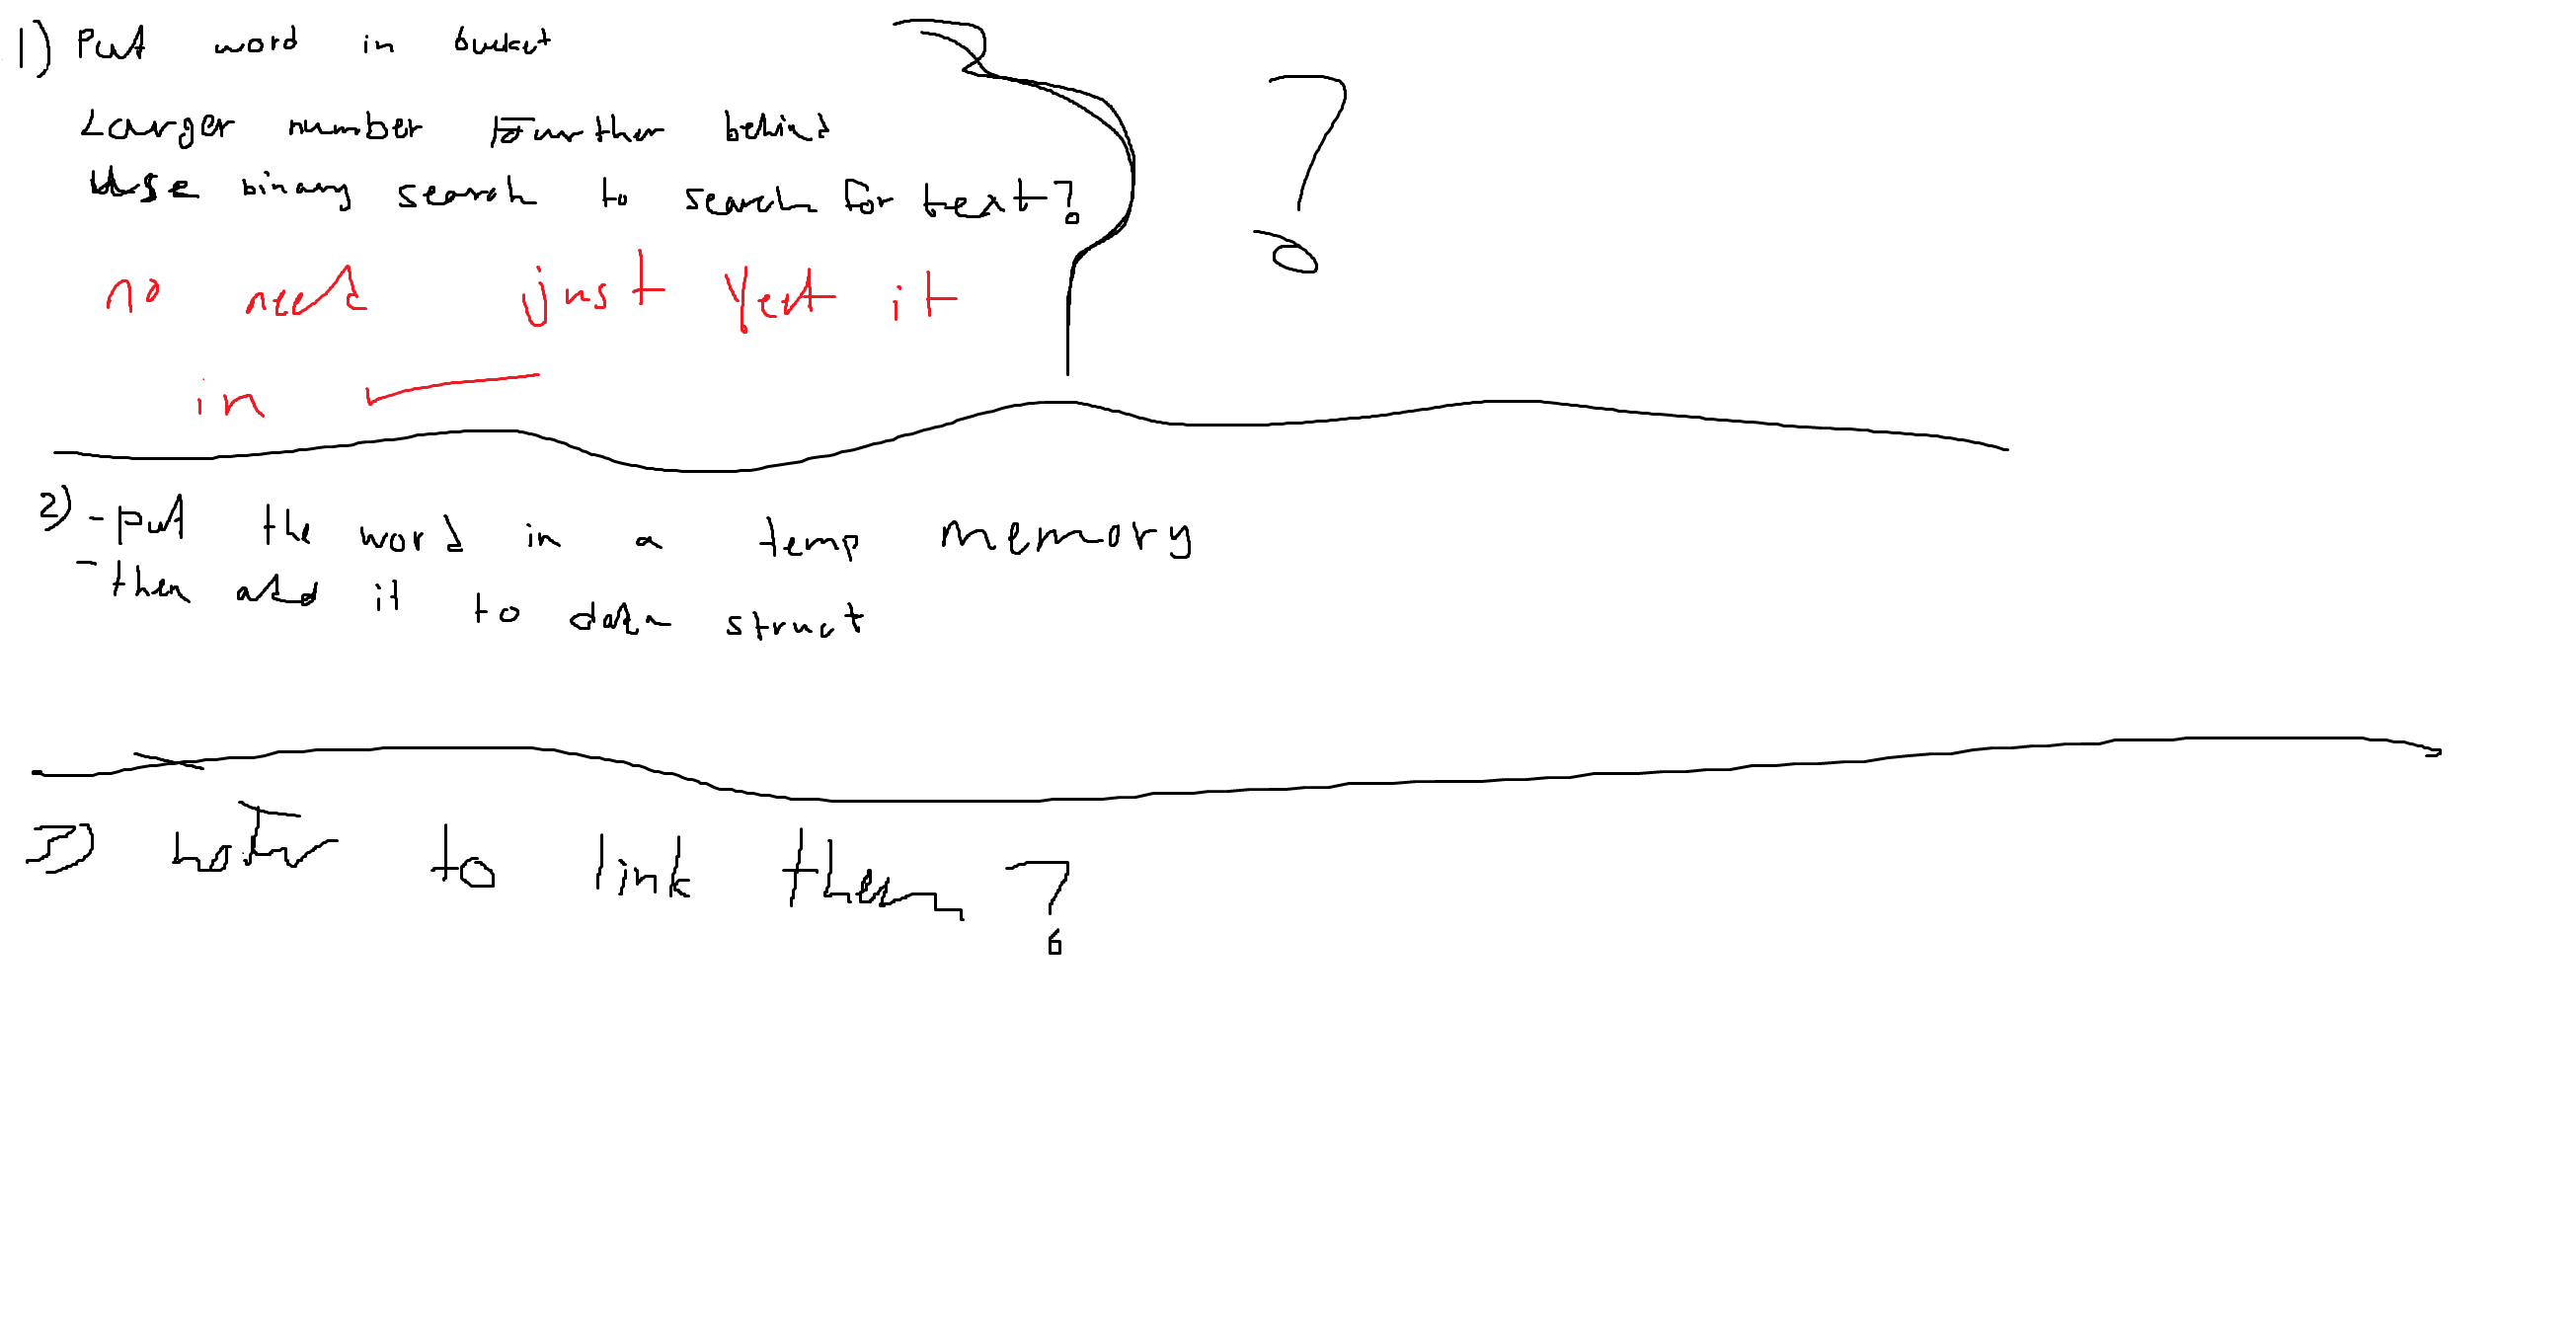 1) Put word in bucket
Larger number further behind
Use binary search to search for text?
?
no need just Yeet it
in
2) - put the word in a temp memory
- then add it to data struct
3) how to link them?